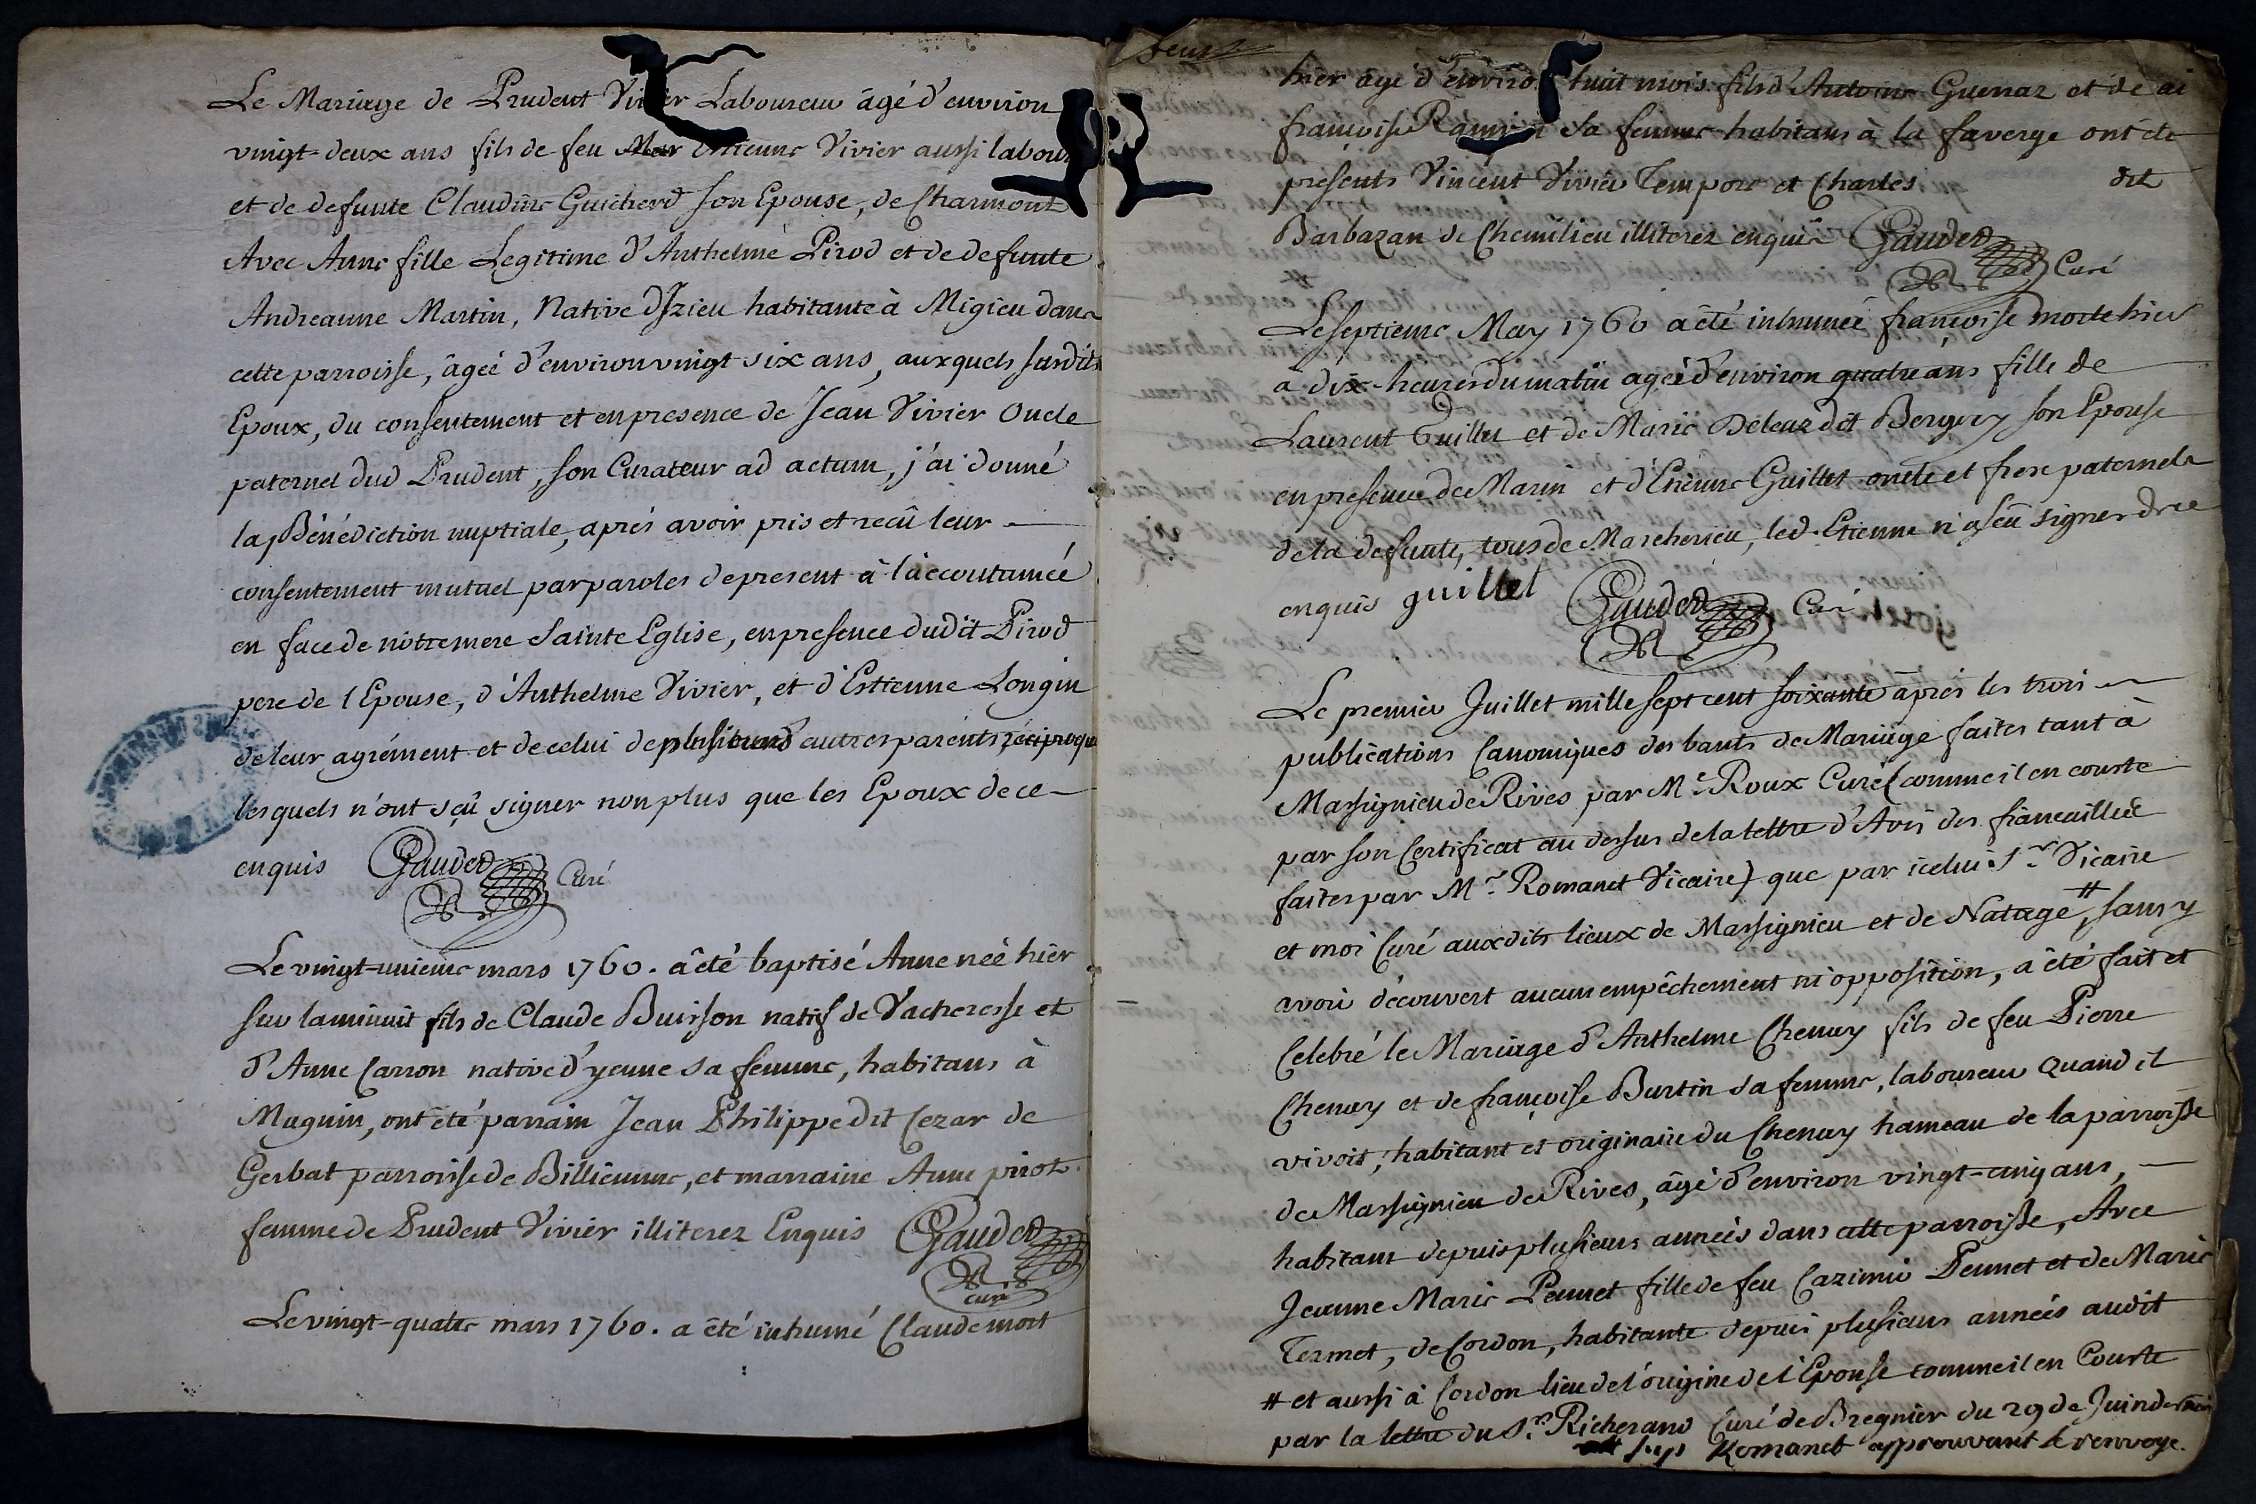 Le Mariage de Prudent Vivier Laboureur âgé d'environ
vingt-deux ans fils de feu Etienne Vivier aussi labour
et de defunte Claudine Guicherd son Epouse, de Charmont
Avec Anne fille Legitime d'Anthelme Pirod et de defunte
Andreanne Martin, Native d'Izieu habitante à Migieu dans
cette parroisse, âgée d'environ vingt six ans, auxquels susdits
Epoux, du consentement et en presence de Jean Vivier Oncle
paternel dud Prudent, son Curateur ad actum, j'ai donné
la Bénédiction nuptiale, aprés avoir pris et recû leur
consentement mutuel par paroles de present à l'accoutumée
en face de nôtre mere Sainte Eglise, en presence dudit Pirod
pere de l'Epouse, d'Anthelme Vivier, et d'Estienne Longin
de leur agrément et de celui de plusieurs autres parents réciproques
lesquels n'ont sçû signer non plus que les Epoux de ce
enquis Gaudet Curé
Le vingt-unieme mars 1760. a été baptisé Anne née hier
sur la minuit fils de Claude Buisson natif de Vacheresse et
d'Anne Carron native d'yenne sa femme, habitans à
Magnin, ont été parrain Jean Philippe dit Cezar de
Gerbat parroisse de Billieme, et marraine Anne pirot
femme de Prudent Vivier illiterez Enquis Gaudet
curé
Le vingt-quatre mars 1760. a été inhumé Claude mort
hier âgé d'environ huit mois fils d'Antoine Guenaz et de
françoise sa femme habitans à la faverge ont été
présents Vincent Vivier Tempore et Charles dit
Barbazan de Chemilieu illiterez enquis Gaudet
Curé
Le septieme May 1760 a été inhumée françoise morte hier
à dix-heures du matin agée d'environ quatre ans fille de
Laurent Guillet et de Marie Deleaz dit Berger son Epouse
en presence de Marin et d'Etienne Guillet oncle et frere paternels
de la defunte, tous de Marcherieu, led. Etienne n'a seû signer de ce
enquis guillet Gaudet Curé
Le premier Juillet mille sept cent soixante âpres les trois
publications Canoniques des bants de Mariage faites tant à
Massignieu de Rives par Mr Roux Curé (comme il en conste
par son Certificat au dessus de la lettre d'Avis des fiancailles
faites par Mr Romanet Vicaire) que par icelui Sr Vicaire
et moi Curé auxdits lieux de Massignieu et de Natage #, sans y
avoir découvert aucun empêchement ni opposition, a été fait et
Celebré le Mariage d'Anthelme Chenay fils de feu Pierre
Chenay et de françoise Burtin sa femme, laboureur quand il
vivoit, habitant et originaire du Chenay hameau de la parroisse
de Massignieu de Rives, âgé d'environ vingt-cinq ans,
habitant depuis plusieurs années dans cette parroisse, Avec
Jeanne Marie Pennet fille de feu Cazimir Pennet et de Marie
Termet, de Cordon, habitante depuis plusieurs années audit
# et aussi à Cordon lieu de l'origine de l'Epouse comme il en Conste
par la lettre du Sr Richerand Curé de Bregnier du 29 de Juin dernier
Romanet approuvant le renvoye.